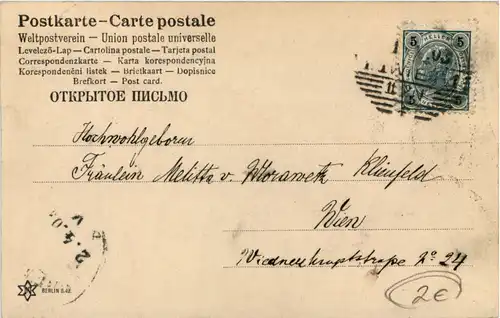 Postkarte - Carte postale
Weltpostverein - Union postale universelle
Levelező-Lap - Cartolina postale - Tarjeta postal
Correspondenzkarte - Karta korespondencyjna
Korespondenční lístek - Brietkaart - Dopisnice
Brefkort - Post card.
ОТКРЫТОЕ ПИСЬМО
5 5
Hochwohlgeboren
Fräulein Melitta v. Klinfeld
Wien
Wiedner Hauptstraße No 24
BERLIN S.42.
2€